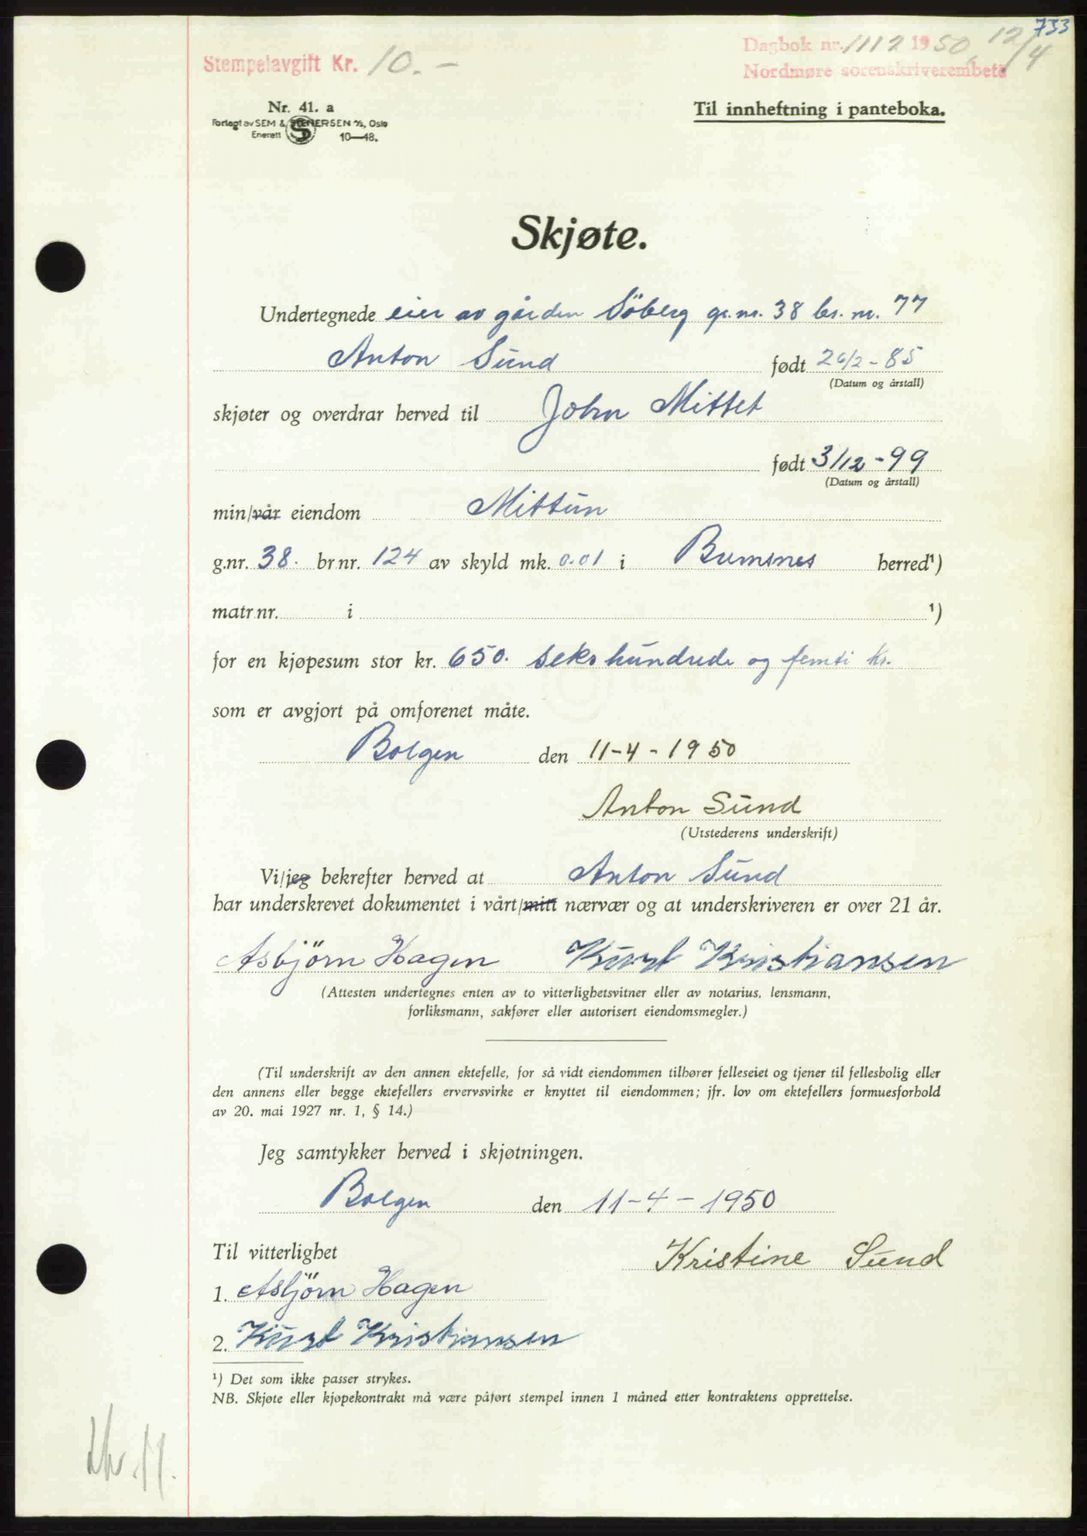 733
Stempelavgift Kr. 10.-
Dagbok nr. 1112 1950, 12/4
Nordmøre sorenskriverembete
Nr. 41. a
Forlagt av SEM & STENERSEN A/S, Oslo
Enerett S 10—48.
Til innheftning i panteboka.
Skjøte.
Undertegnede eier av gården Söberg gr.nr. 38 br. nr. 77
Anton Sund født 26/2-85
(Datum og årstall)
skjøter og overdrar herved til John Mittet
født 3/12-99
(Datum og årstall)
min/vår eiendom Mittun
g.nr. 38. br.nr. 124 av skyld mk. 0.01 i Bremsnes herred¹)
matr.nr. i ¹)
for en kjøpesum stor kr. 650. sekshundrede og femti kr.
som er avgjort på omforenet måte.
Bolgen den 11-4-1950
Anton Sund
(Utstederens underskrift)
Vi/jeg bekrefter herved at Anton Sund
har underskrevet dokumentet i vårt/mitt nærvær og at underskriveren er over 21 år.
Asbjörn Hagen Kurt Kristiansen
(Attesten undertegnes enten av to vitterlighetsvitner eller av notarius, lensmann,
forliksmann, sakfører eller autorisert eiendomsmegler.)
(Til underskrift av den annen ektefelle, for så vidt eiendommen tilhører felleseiet og tjener til fellesbolig eller
den annens eller begge ektefellers ervervsvirke er knyttet til eiendommen; jfr. lov om ektefellers formuesforhold
av 20. mai 1927 nr. 1, § 14.)
Jeg samtykker herved i skjøtningen.
Bolgen den 11-4-1950
Til vitterlighet Kristine Sund
1. Asbjörn Hagen
2. Kurt Kristiansen
¹) Det som ikke passer strykes.
NB. Skjøte eller kjøpekontrakt må være påført stempel innen 1 måned etter kontraktens opprettelse.